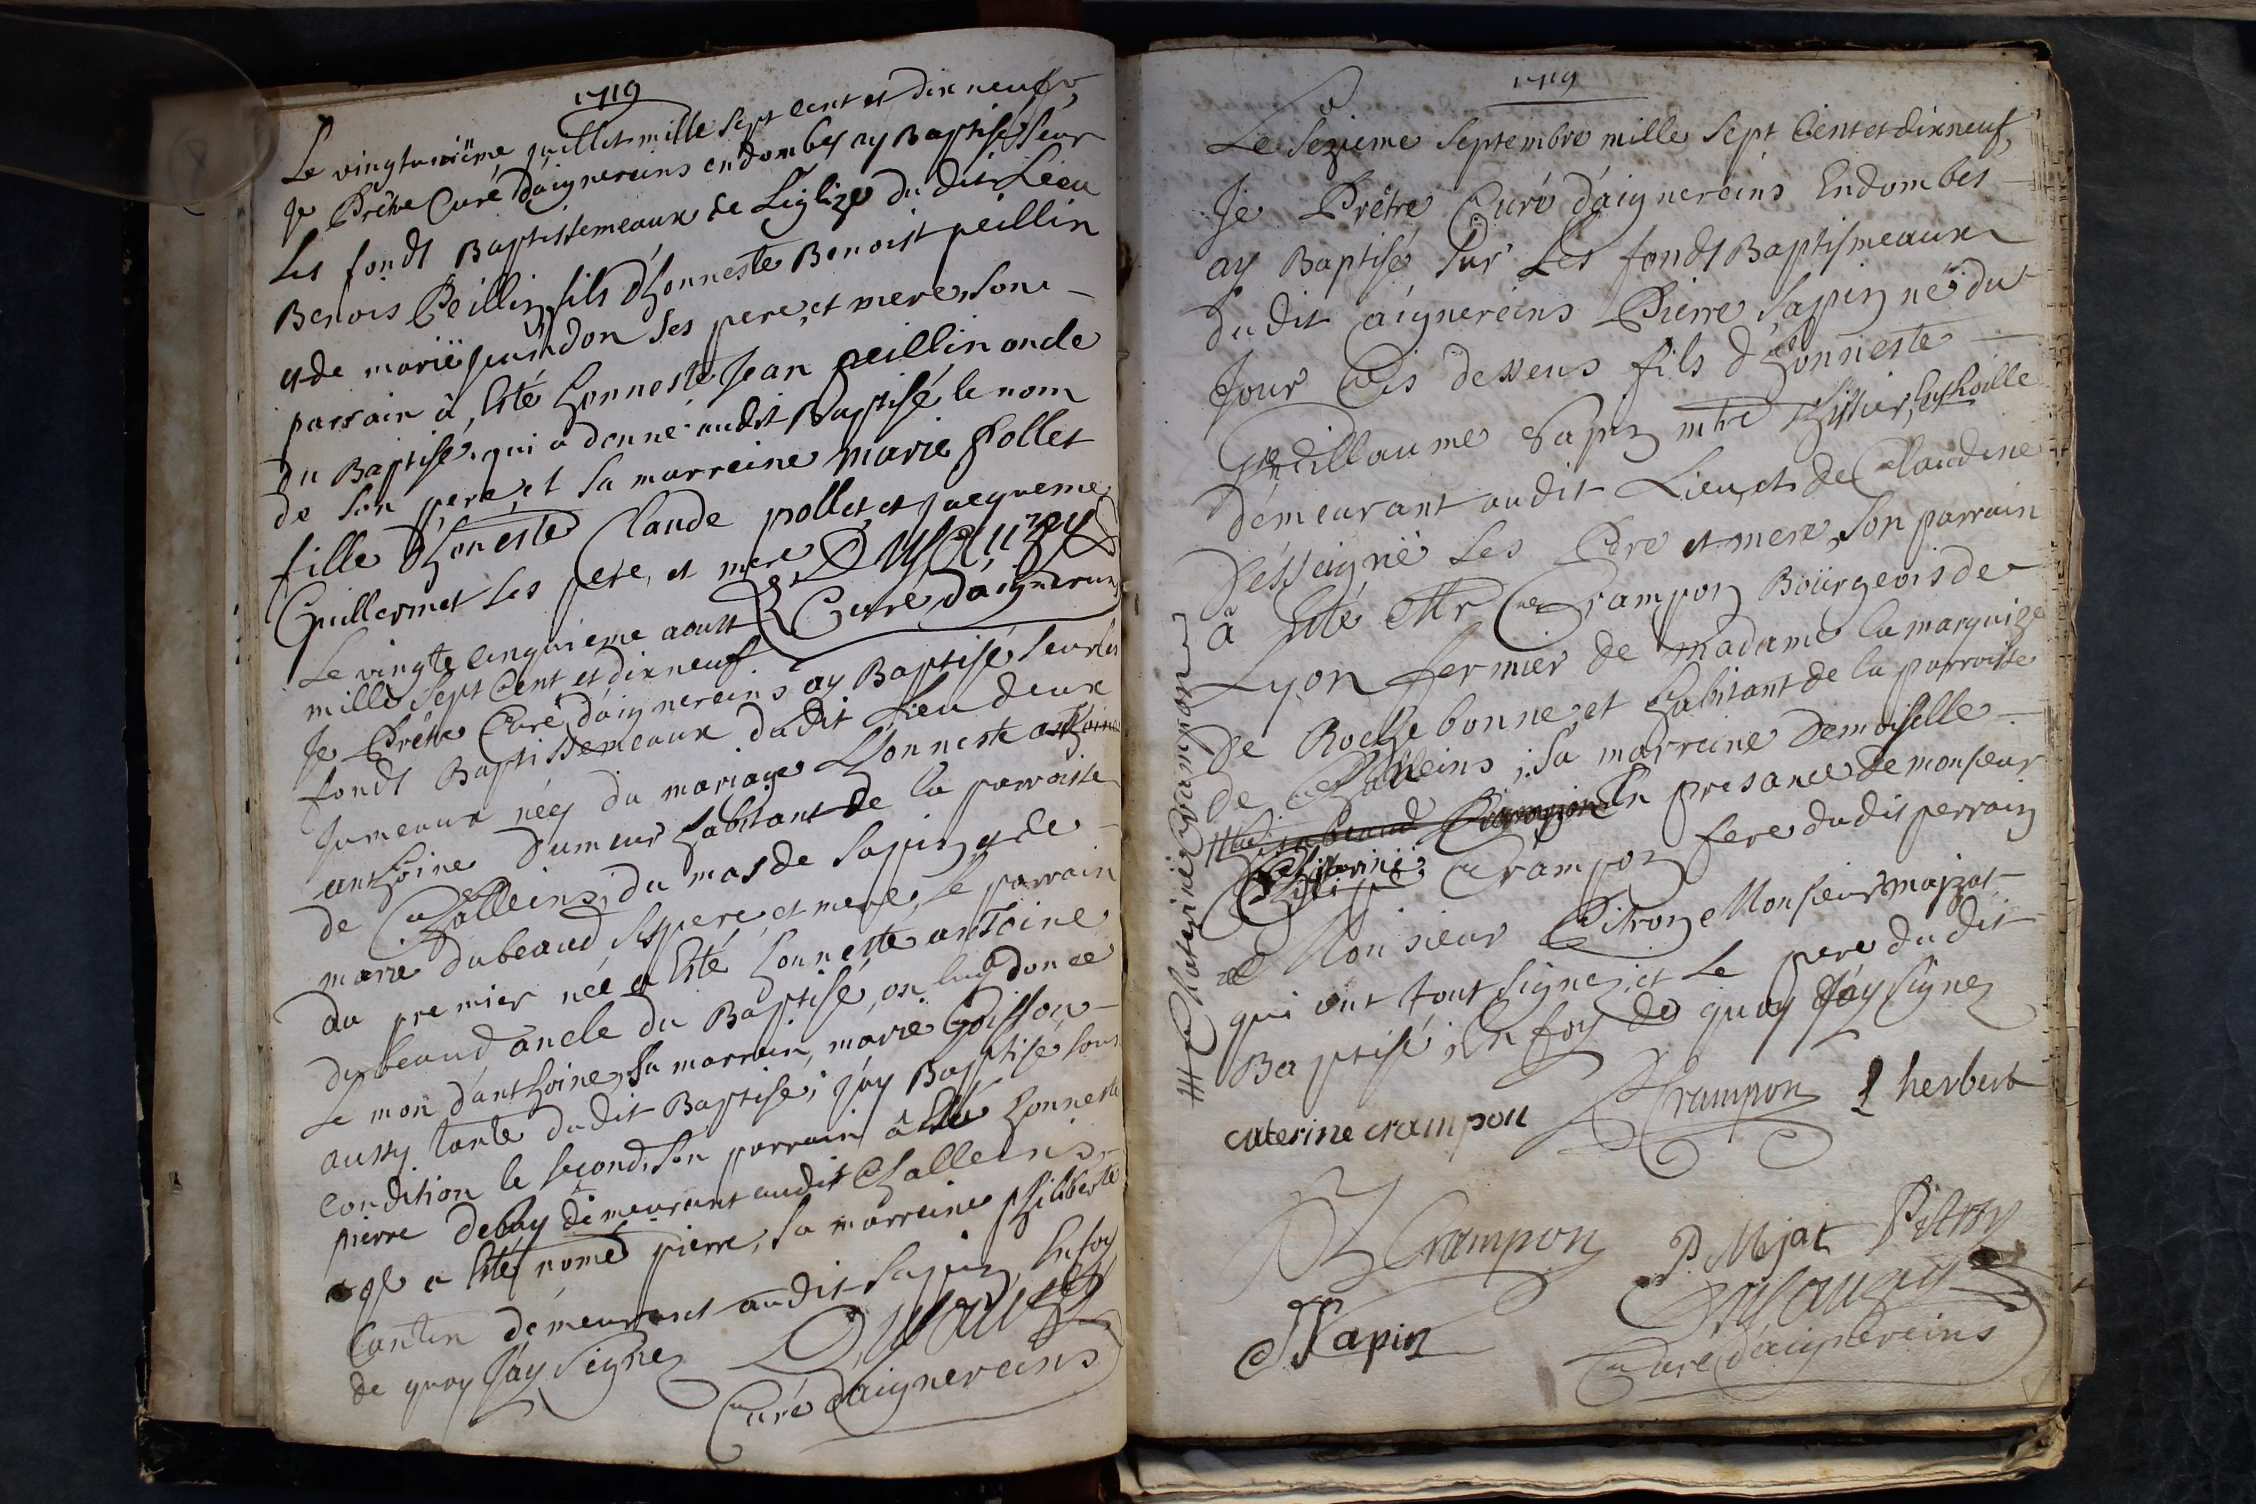 1719
Le vingtunième juillet mille sept cent et dix neufz
Je Prêtre Curé d'aignereins en dombes ay Baptisé seur
Les fondt Baptissemeaux de L'églize du dit Lieu
Benois Peillin fils d'honneste Benoist peillin
et de marië jeandon ses pere et mere, son
parrain â esté honneste Jean peillin oncle
du Baptisé, qui a donné audit Baptisé le nom
de son pere, et sa marreine marie Pollet
fille d'honeste Claude pollet et jacqueme
Guillermet ses pere, et mere Dusauzey
Curé d'aignereins
Le vingte cinquieme aoust
mille sept cent et dix neuf
Je Prêtre Curé d'aignereins ay Baptisé seur les
fondt Baptissemeaux du dit Lieu deux
Jumeaux néz du mariage d'honneste
anthoine Dumeur habitant de la parroisse
de Challeins, du mas de Sapin et de
marie dubeaud ses pere, et mere, le parrain
du premier née a esté honneste antoine
dubeaud oncle du Baptisé, on luy donce
Le mon d'anthoine, sa marrain, marie Goisson
aussy tante dudit Baptisé; j'ay Baptisé sous
condition le second, son parrain â esté honneste
pierre debay demeurant audit Challeins
a esté nomé pierre, sa marreine philiberte
Cantin demeurant audit Sapin, En foy
de quoy J'ay Signez Dusauzey
Curé d'aignereins
1719
Le Sezieme Septembre mille Sept Cent et dixneuf,
Je Prêtre Curé d'aignereins En dombes
ay Baptisé sur Les fondt Baptismeaux
du dit aignereins Pierre Sapin né du
Jour Cis dessens fils d'honneste
Guillaume Sapin mtre
demeurant audit Lieu, et de Claudine
ses Pere et mere, Son parrain
â Esté Mr Crampon Boürgeois de
Lyon fermier de madame la marquize
de Rochebonne, et habitant de la parroisse
de Challeins, Sa marreine Demoiselle
En presance de monsieur
Crampon frere du dit perrain
Monsieur Pitron Monsieur majat
qui ont tout signez, et Le pere du dit
Baptisé, En foy de quoy J'ay Signez
Chaterine Crampon
caterine crampon Crampon L herbert
Crampon P. Mjat Pitron
Sapin Dusauzey
Curé d'aignereins